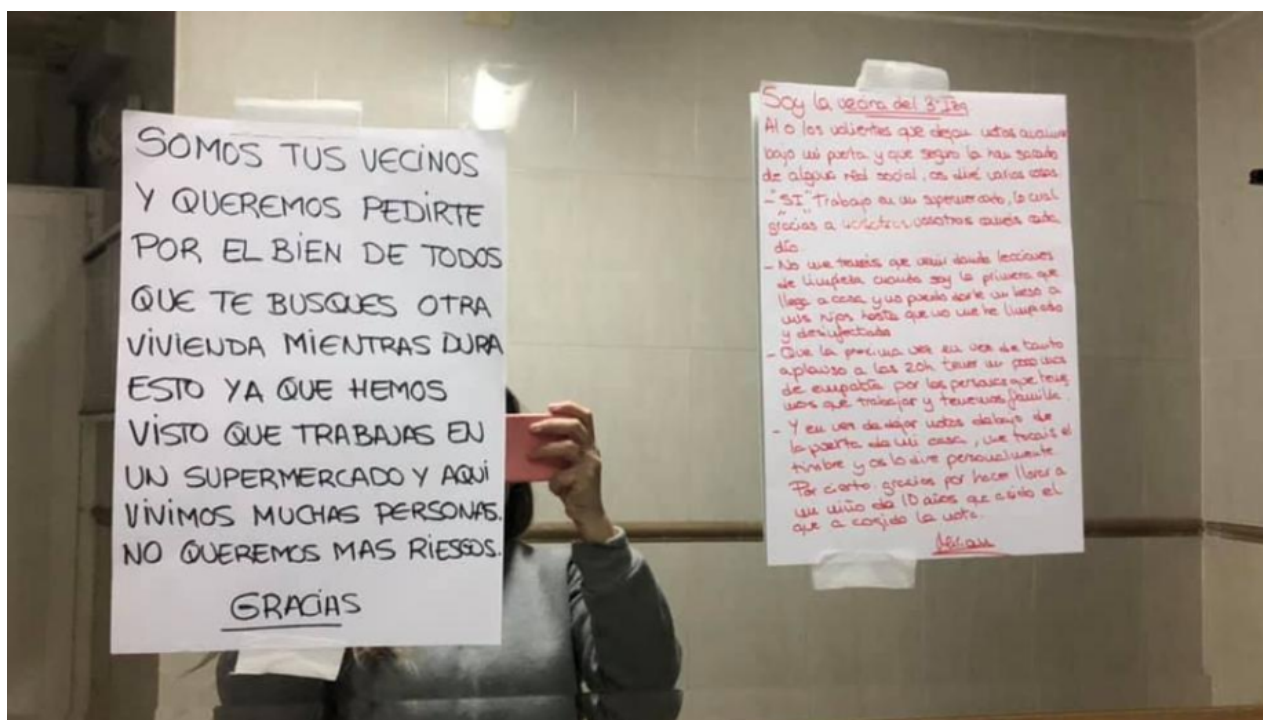 SOMOS TUS VECINOS
Y QUEREMOS PEDIRTE
POR EL BIEN DE TODOS
QUE TE BUSQUES OTRA
VIVIENDA MIENTRAS DURA
ESTO YA QUE HEMOS
VISTO QUE TRABAJAS EN
UN SUPERMERCADO Y AQUÍ
VIVIMOS MUCHAS PERSONAS.
NO QUEREMOS MAS RIESGOS.
GRACIAS
Soy la vecina del 3º Izq
Al o los valientes que dejan notas
bajo mi puerta y que seguro la han sacado
de alguna red social, os diré varias cosas
- "SI" Trabajo en un supermercado, lo cual
gracias a vosotros coméis cada
día.
- No me tenéis que venir dando lecciones
de limpieza cuando soy la primera que
llega a casa y no puedo darle un beso a
mis hijos hasta que no me he limpiado
y desinfectado
- Que la proxima vez en vez de tanto
aplauso a las 20h tener un poco mas
de empatía por las personas que tene
mos que trabajar y tenemos familia.
- Y en vez de dejar notas debajo de
la puerta de mi casa, me tocais el
timbre y os lo dire personalmente
Por cierto, gracias por hacer llorar a
un niño de 10 años que a sido el
que a cogido la nota.
Miriam